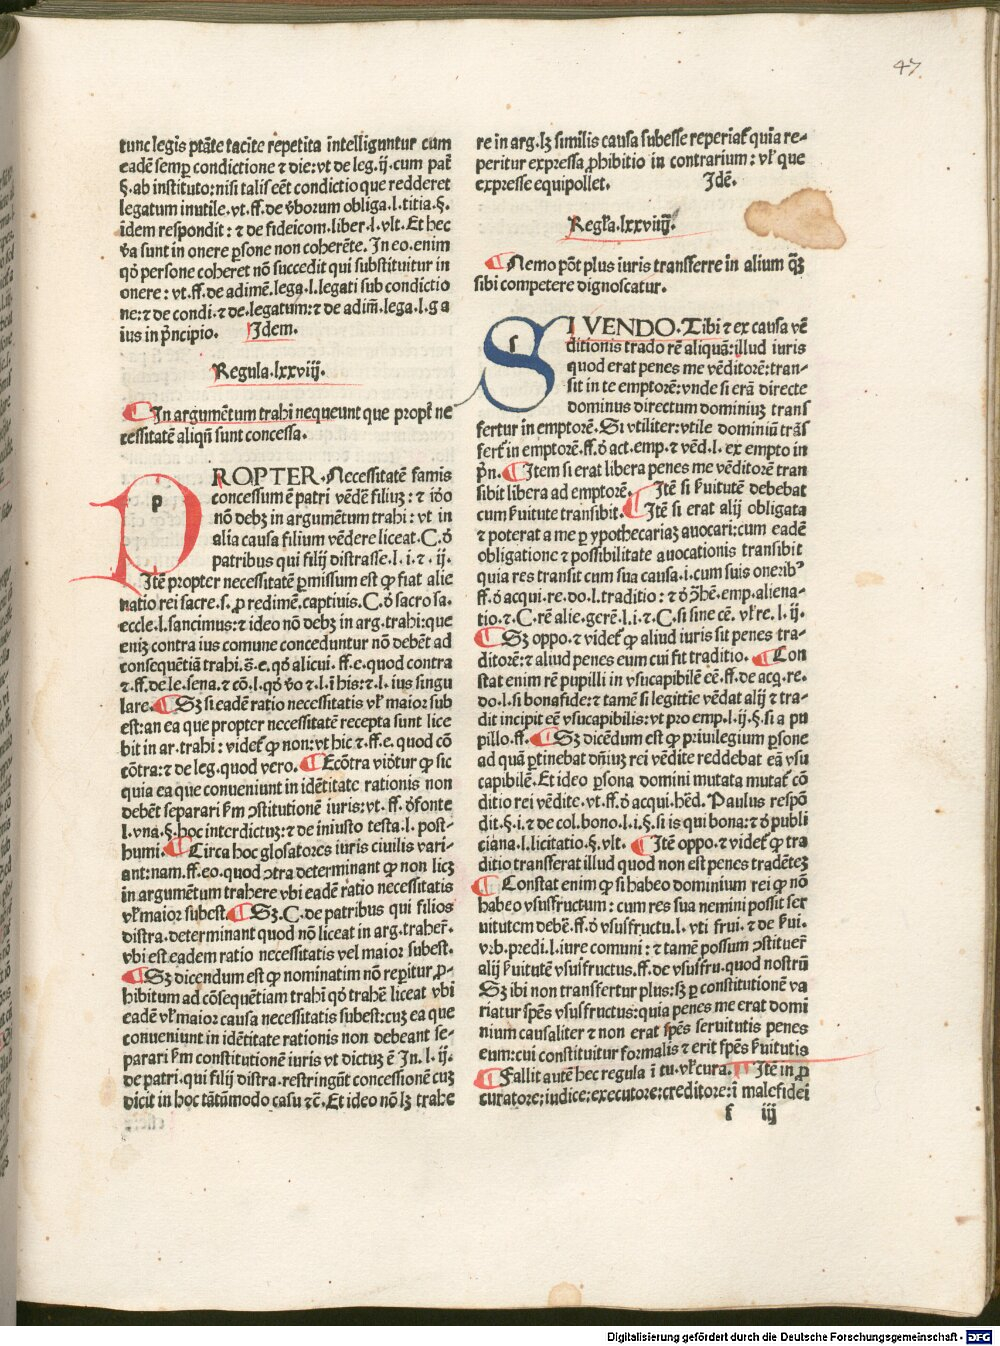 47
tunc legis ptāte tacite repetita intelliguntur cum
eadē semꝑ condictione ⁊ die: vt de leg. ij. cum pat̄
§. ab instituto: nisi talis eēt condictio que redderet
legatum inutile. vt. ff. de v̄borum obliga. l. titia. §.
idem respondit: ⁊ de fideicom. liber. l. vlt. Et hec
v̄a sunt in onere ꝑsone non coherēte. In eo. enim
qō persone coheret nō succedit qui substituitur in
onere: vt. ff. de adimē. lega. l. legati sub condictio
ne: ⁊ de condi. ⁊ de. legatum: ⁊ de adim̄. lega. l. ga
ius in p̄ncipio. Idem.
Regula. lxxviij.
¶ In argumētum trahi nequeunt que propt̄ ne
cessitatē aliqn̄ sunt concessa.
p
PROPTER. Necessitatē famis
concessum ē patri vēdē filiuꝫ: ⁊ iō
nō debꝫ in argumētum trahi: vt in
alia causa filium vēdere liceat. C. ō
patribus qui filij distrasse. l. i. ⁊. ij.
Itē propter necessitatē ꝑmissum est ꝙ fiat alie
natio rei sacre. s. ꝓ redimē. captiuis. C. ō sacro sa.
eccle. l. sancimus: ⁊ ideo nō debꝫ in arg. trahi: que
eniꝫ contra ius comune conceduntur nō debēt ad
consequētiā trahi. s̄. e. qō alicui. ff. e. quod contra
⁊. ff. de le. sena. ⁊ cō. l. qō v̄o ⁊ l. ī his: ⁊ l. ius singu
lare. ¶ Sꝫ si eadē ratio necessitatis vl̄ maior sub
est: an ea que propter necessitatē recepta sunt lice
bit in ar. trahi: videt̄ ꝙ non: vt hic ⁊ ff. e. quod cō
cōtra: ⁊ de leg. quod vero. ¶ Ecōtra viōtur ꝙ sic
quia ea que conueniunt in idētitate rationis non
debēt separari ẜm ꝯstitutionē iuris: vt. ff. ō fonte
l. vna. §. hoc interdictuꝫ: ⁊ de iniusto testa. l. post-
humi. ¶ Circa hoc glosatores iuris ciuilis vari-
ant: nam. ff. eo. quod ꝯtra determinant ꝙ non licꝫ
in argumētum trahere vbi eadē ratio necessitatis
vl̄ maior subest. ¶ Sꝫ. C. de patribus qui filios
distra. determinant quod nō liceat in arg. traher̄.
vbi est eadem ratio necessitatis vel maior subest.
¶ Sꝫ dicendum est ꝙ nominatim nō reꝑitur ꝓ-
hibitum ad cōsequētiam trahi qō trahē liceat vbi
eadē vl̄ maior causa necessitatis subest: cuꝫ ea que
conueniunt in idētitate rationis non debeant se-
parari ẜm constitutionē iuris vt dictuꝫ ē In. l. ij.
de patri. qui filij distra. restringūt concessionē cuꝫ
dicit in hoc tātūmodo casu ⁊c̄. Et ideo nō lꝫ trahe
re in arg. lꝫ similis causa subesse reperiat̄ quia re-
peritur expressa ꝓhibitio in contrarium: vl̄ que
expresse equipollet. Idē.
Regl̄a. lxxviiij.
¶ Nemo pōt plus iuris transferre in alium qꝫ
sibi competere dignoscatur.
s
SI VENDO. Tibi ⁊ ex causa vē
ditionis trado rē aliquā: illud iuris
quod erat penes me vēditorē: tran-
sit in te emptorē: vnde si erā directe
dominus directum dominiuꝫ trans
fertur in emptorē. Si vtiliter: vtile dominiū trās
fert̄ in emptorē. ff. ō act. emp. ⁊ vēd. l. ex empto in
p̄n. ¶ Item si erat libera penes me vēditorē tran
sibit libera ad emptorē. ¶ Itē si ẜuitutē debebat
cum ẜuitute transibit. ¶ Itē si erat alij obligata
⁊ poterat a me ꝑ ypothecariaꝫ auocari: cum eadē
obligatione ⁊ possibilitate auocationis transibit
quia res transit cum sua causa. i. cum suis oneribꝰ
ff. ō acqui. re. do. l. traditio: ⁊ ō ꝯhē. emp. aliena-
tio. ⁊. C. rē alie. gerē. l. i. ⁊. C. si sine cē. vl̄ re. l. ij.
¶ Sꝫ oppo. ⁊ videt̄ ꝙ aliud iuris sit penes tra-
ditorē: ⁊ aliud penes eum cui fit traditio. ¶ Con
stat enim rē pupilli in vsucapibilē eē. ff. de acq. re.
do. l. si bonafide: ⁊ tamē si legittie vēdat alij ⁊ tra-
dit incipit eē vsucapibilis: vt pro emp. l. ij. §. si a pu
pillo. ff. ¶ Sꝫ dicēdum est ꝙ priuilegium ꝑsone
ad quā ꝑtinebat dn̄ius rei vēdite reddebat eā vsu
capibilē. Et ideo ꝑsona domini mutata mutat̄ cō
ditio rei vēdite. vt. ff. ō acqui. hēd. Paulus respō
dit. §. i. ⁊ de col. bono. l. i. §. si is qui bona: ⁊ ō publi
ciana. l. licitatio. §. vlt. ¶ Itē oppo. ⁊ videt̄ ꝙ tra
ditio transferat illud quod non est penes tradēteꝫ
¶ Constat enim ꝙ si habeo dominium rei ꝙ nō
habeo vsusfructum: cum res sua nemini possit ser
uitutem debē. ff. ō vsusfructu. l. vti frui. ⁊ de ẜui.
vrb. predi. l. iure comuni: ⁊ tamē possum ꝯstituer̄
alij ẜuitutē vsusfructus. ff. de vsusfru. quod nostrū
Sꝫ ibi non transfertur plus: sꝫ ꝑ constitutionē va
riatur sp̄es vsusfructus: quia penes me erat domi
nium causaliter ⁊ non erat sp̄es seruitutis penes
eum: cui constituitur formalis ⁊ erit sp̄es ẜuitutis
¶ Fallit autē hec regula ī tu. vl̄ cura. ¶ Itē in ꝓ
curatore: iudice: executore: creditore: ī malefidei
f iij
Digitalisierung gefördert durch die Deutsche Forschungsgemeinschaft - DFG